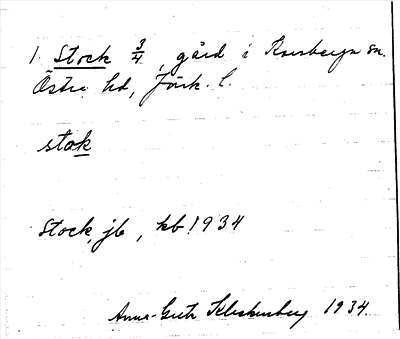 1. Stock 3/4, gård i Ramsberga sn.
Östra hd, Jönk. l.
stok
Stock, jb, kb 1934
Anna-Greta Klackenberg 1934.